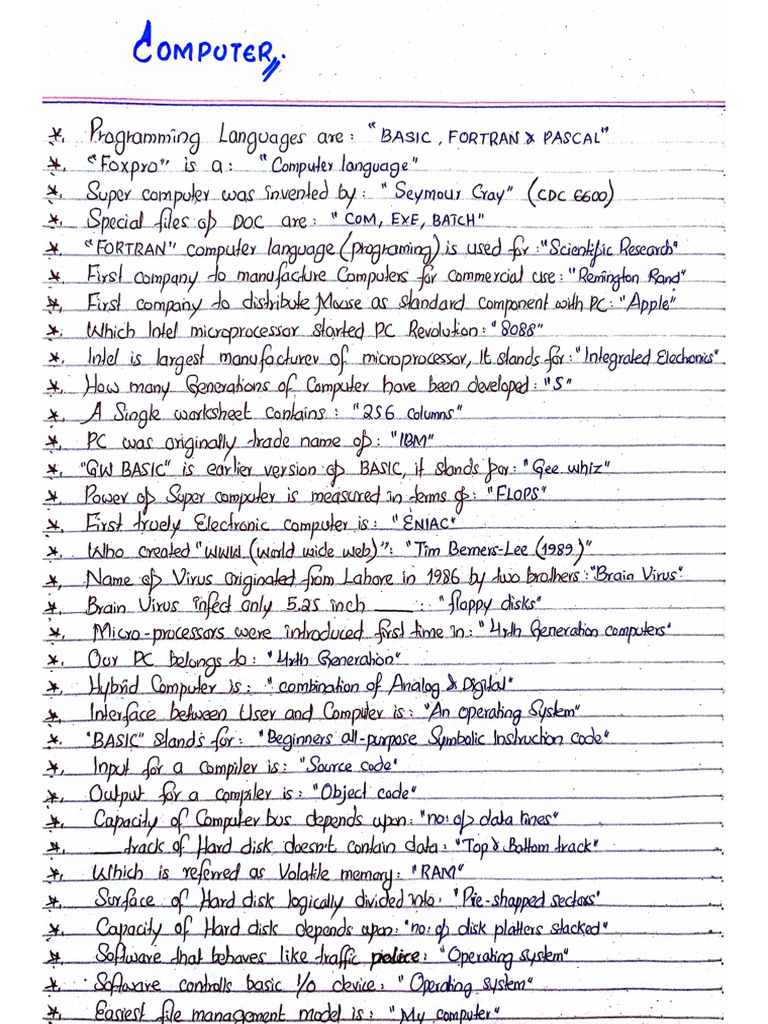 COMPUTER
*. Programming Languages are: "BASIC, FORTRAN & PASCAL"
*. "Foxpro" is a: "Computer language"
*. Super computer was invented by: "Seymour Cray" (CDC 6600)
*. Special files of DOC are: "COM, EXE, BATCH"
*. "FORTRAN" computer language (programing) is used for: "Scientific Research"
*. First company to manufacture Computers for commercial use: "Remington Rand"
*. First company to distribute Mouse as standard component with PC: "Apple"
*. Which Intel microprocessor started PC Revolution: "8088"
*. Intel is largest manufacturer of microprocessor, It stands for: "Integrated Electronics"
*. How many Generations of Computer have been developed: "5"
*. A Single worksheet contains: "256 columns"
*. PC was originally trade name of: "IBM"
*. "GW BASIC" is earlier version of BASIC, it stands for: "Gee whiz"
*. Power of Super computer is measured in terms of: "FLOPS"
*. First truely Electronic computer is: "ENIAC"
*. Who created "WWW (world wide web)": "Tim Berners-Lee (1989)"
*. Name of Virus originated from Lahore in 1986 by two brothers: "Brain Virus"
*. Brain Virus infed only 5.25 inch ____: "floppy disks"
*. Micro-processors were introduced first time in: "4rth Generation computers"
*. Our PC belongs to: "4rth Generation"
*. Hybrid Computer is: "combination of Analog & Digital"
*. Interface between User and Computer is: "An operating System"
*. "BASIC" Stands for: "Beginners all-purpose Symbolic Instruction code"
*. Input for a compiler is: "Source code"
*. Output for a compiler is: "Object code"
*. Capacity of Computer bus depends upon: "no: of data lines"
*. ____track of Hard disk doesn't contain data: "Top & Bottom track"
*. Which is referred as Volatile memory: "RAM"
*. Surface of Hard disk logically divided into: "Pie-shapped sectors"
*. Capacity of Hard disk depends upon: "no: of disk platters stacked"
*. Software that behaves like traffic police: "Operating system"
*. Software controlls basic I/O device: "Operating system"
*. Easiest file management model is: "My computer"